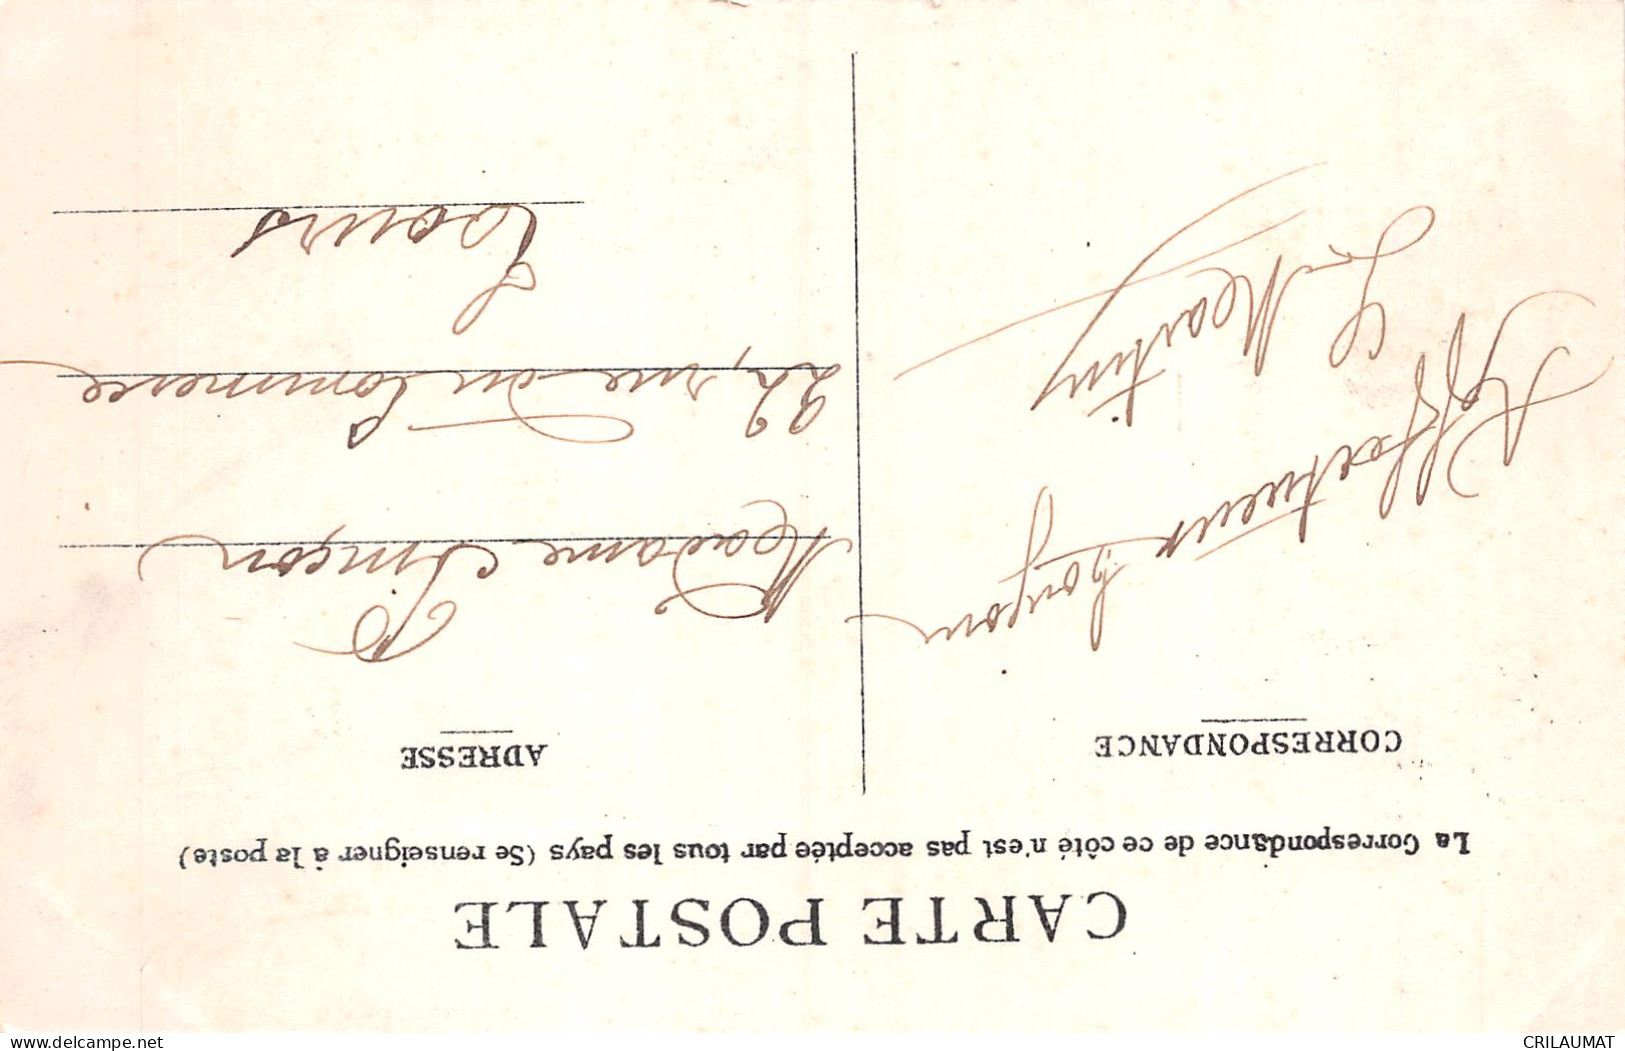 CARTE POSTALE
La Correspondance de ce côté n'est pas acceptée par tous les pays (Se renseigner à la poste)
CORRESPONDANCE
Affectueux
G. Martin
ADRESSE
Madame
22, rue du Commerce
Tours
delcampe.net
CRILAUMAT